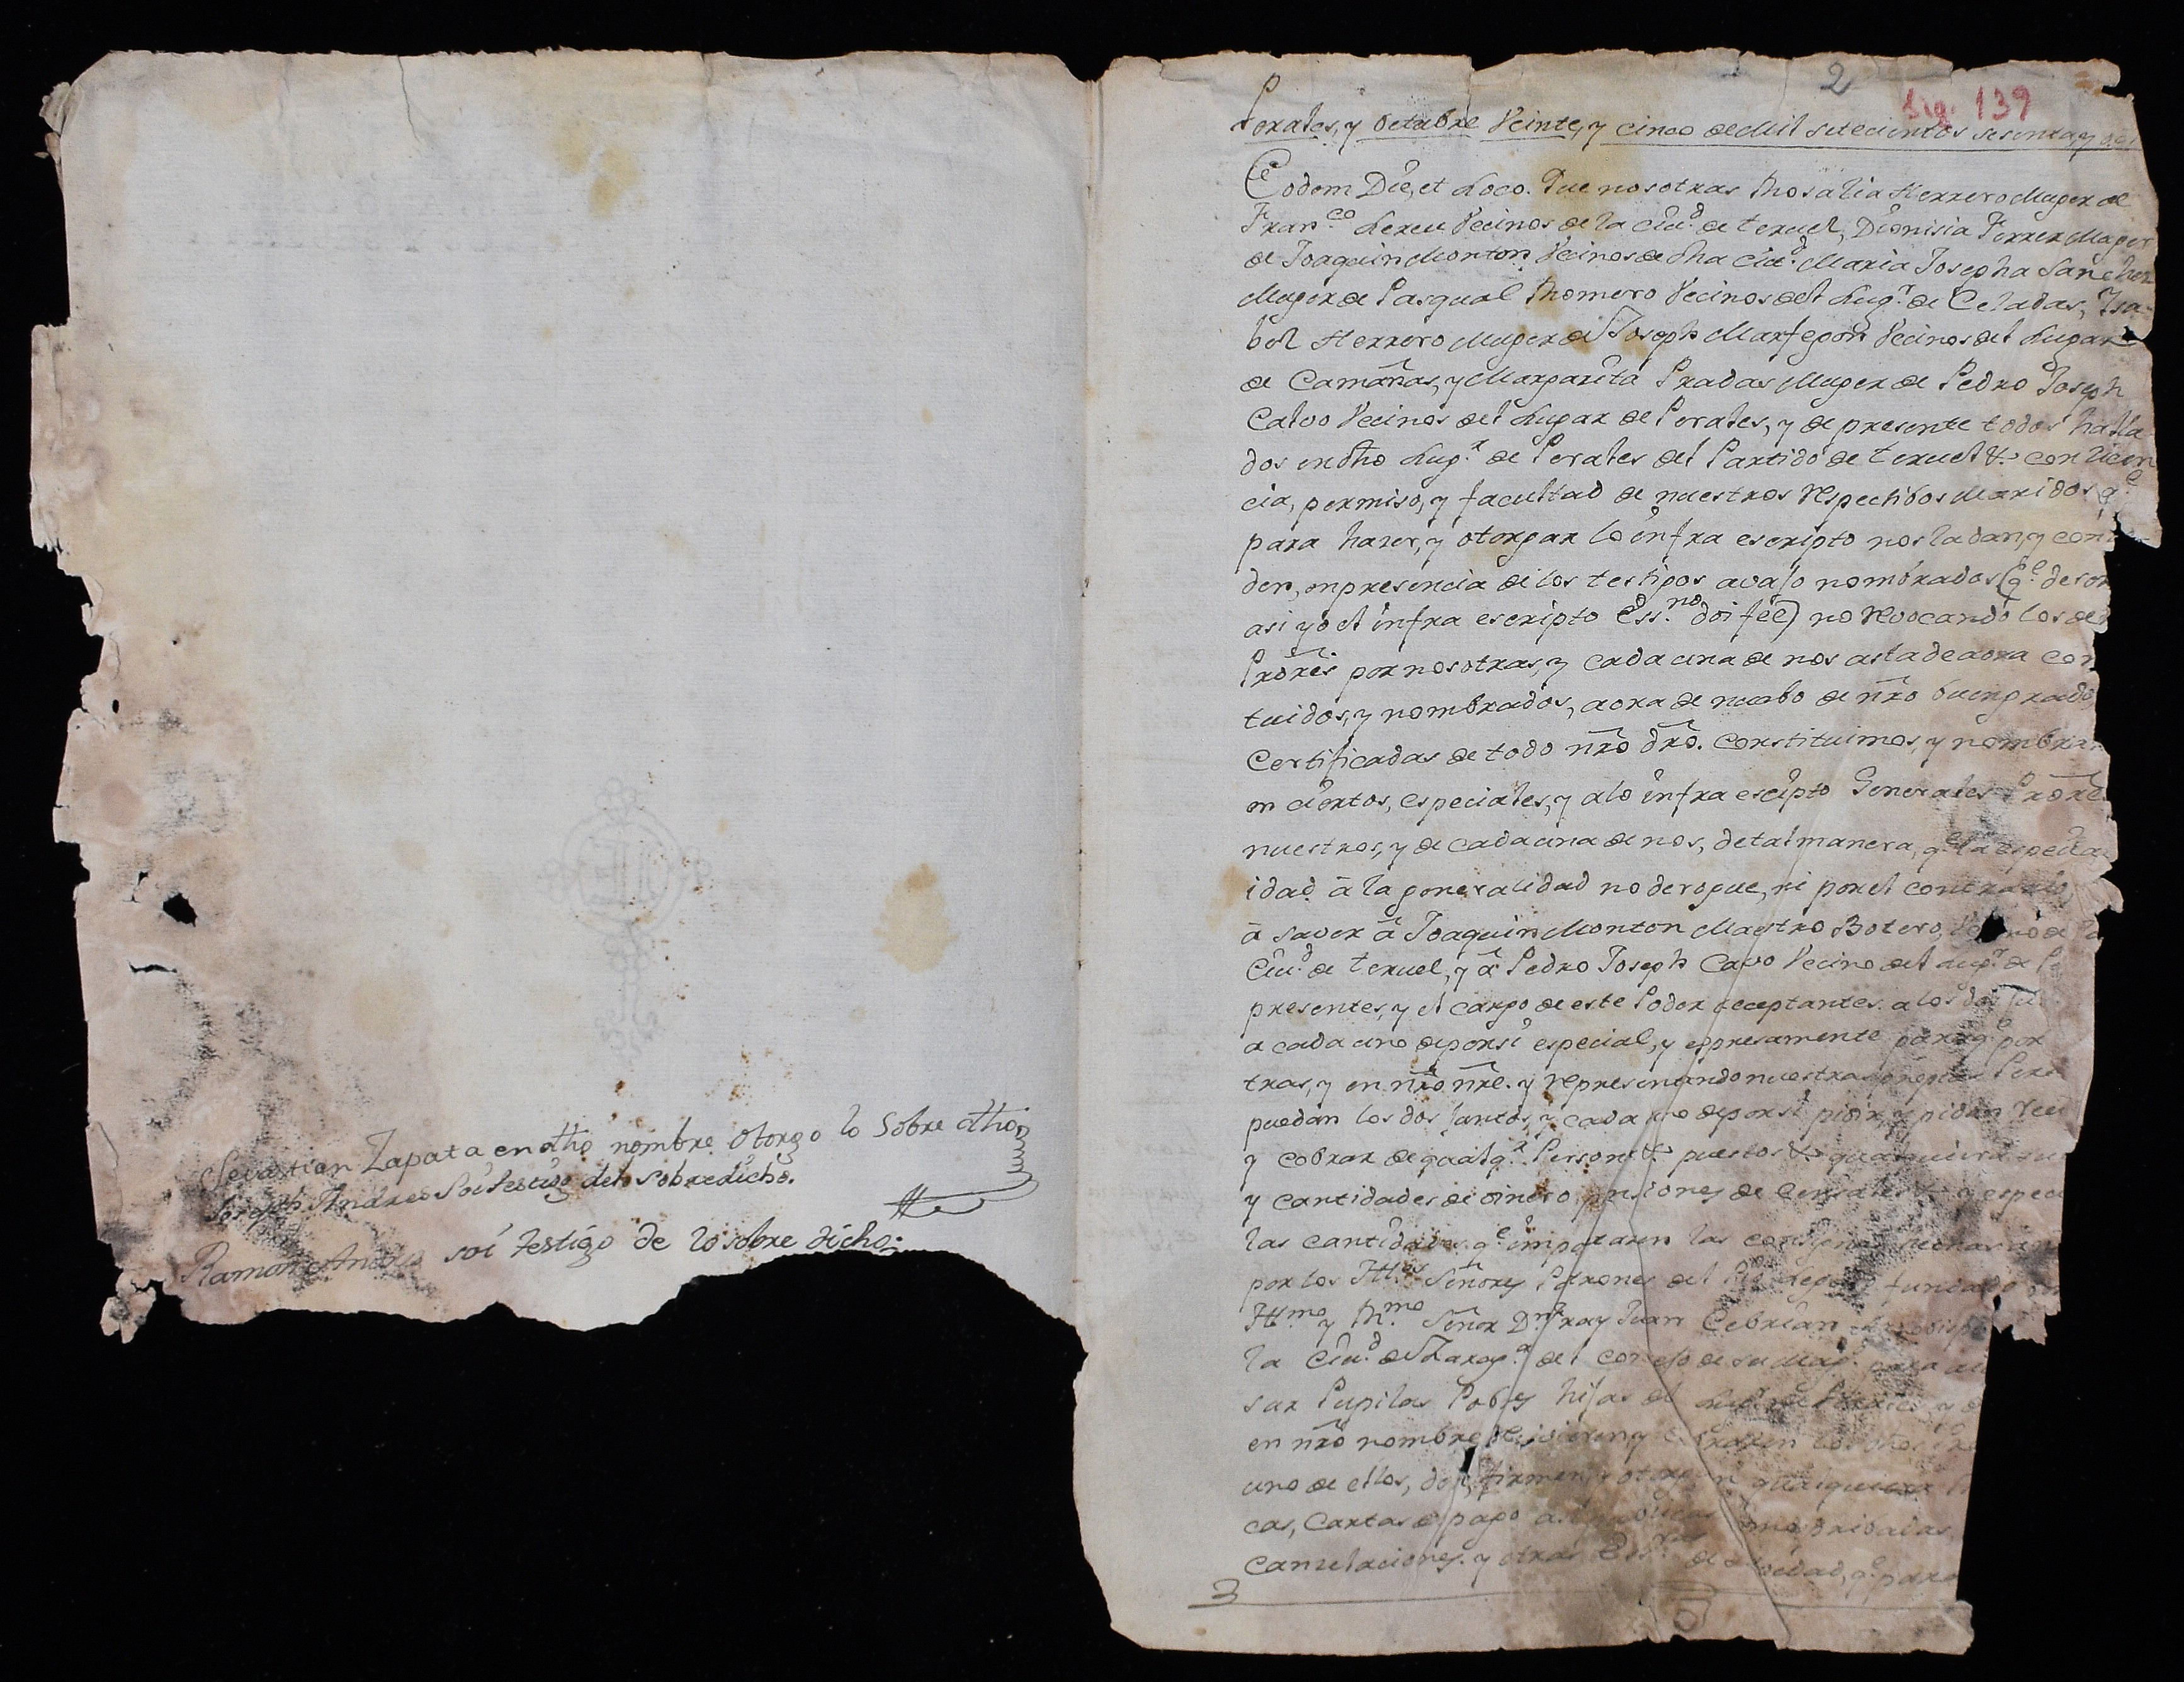 Sevastian Zapata en dho nombre otorgo lo sobre dho
Joseph Andres Soi testigo delo sobredicho.
Ramon Andres soi testigo de lo sobre dicho.
2
sig. 139
Perales, y Octubre Veinte, y cinco de Mil setecientos sesenta, y
Eodem Die, et Loco. Que nosotras Rosalia Herrero Muger de
Fran.co Lereu Vecinos de la Ciu.d de teruel, Dionisia Ferrer Muger
de Joaquin Monton Vecinos de dha Ciu.d Maria Josepha Sanchez
Muger de Pasqual Romero Vecinos del Lug.r de Celadas, Isa-
bel Herrero Muger de Joseph Marfegon Vecinos del Lugar
de Camañas, y Margarita Pradas Muger de Pedro Joseph
Calvo Vecinos del Lugar de Perales, y de presente todos halla
dos en dho Lug.r de Perales del Partido de teruel &. con licen
cia, permiso, y facultad de nuestros respectibos Maridos q.e
para hazer, y otorgar lo infra escripto nos la dan, y con
den, en presencia de los testigos avajo nombrados (q.e de
asi yo el infra escripto Ess.no doi feé) no revocando los
Prôres por nosotras, y cada una de nos asta de aora con
tuidos, y nombrados, aora de nuebo de nro buen grado
Certificadas de todo nrô drô. Constituimos, y nombra
en ciertos, especiales, y a lo infra escipto Generales Prôre
nuestros, y de cada una de nos, de tal manera, q.e la especia
idad à la generalidad no derogue, ni por el contrario
à saver à Joaquin Monton Maestro Botero,
Ciu.d de teruel, y à Pedro Joseph Cavo Vecino del Lug.r de
presentes, y el cargo de este Poder acceptantes. a los dos
a cada uno de por si especial, y espresamente para q.e por
tras, y en nrô nre. y representando nuestras propias Per
puedan los dos juntos, y cada uno de por si pidir, y pidan
y cobrar de qualq.r Person. &. puestos &. qualquiera
y cantidades de dinero, pensiones de Censales & y espec
las cantidades q.e importaren las consignas hechas
por los Ill.es Señores Patrones del Pio Legado fundado
Ill.mo y R.mo Señor D.n Fray Juan Cebrian Arzobispo
la Ciu.d de Zarag.a del consejo de su Mag.d para
sar Pupilas Pobres hijas del Lug.r de Perales, y
en nrô nombre recivieren, y cobraren los dhos
uno de ellos, den, firmen y otorguen qualquiera
cas, Cartas de pago asi publicas como pribadas,
Canzelaciones. y otras Ess.ras de, q.e para
3